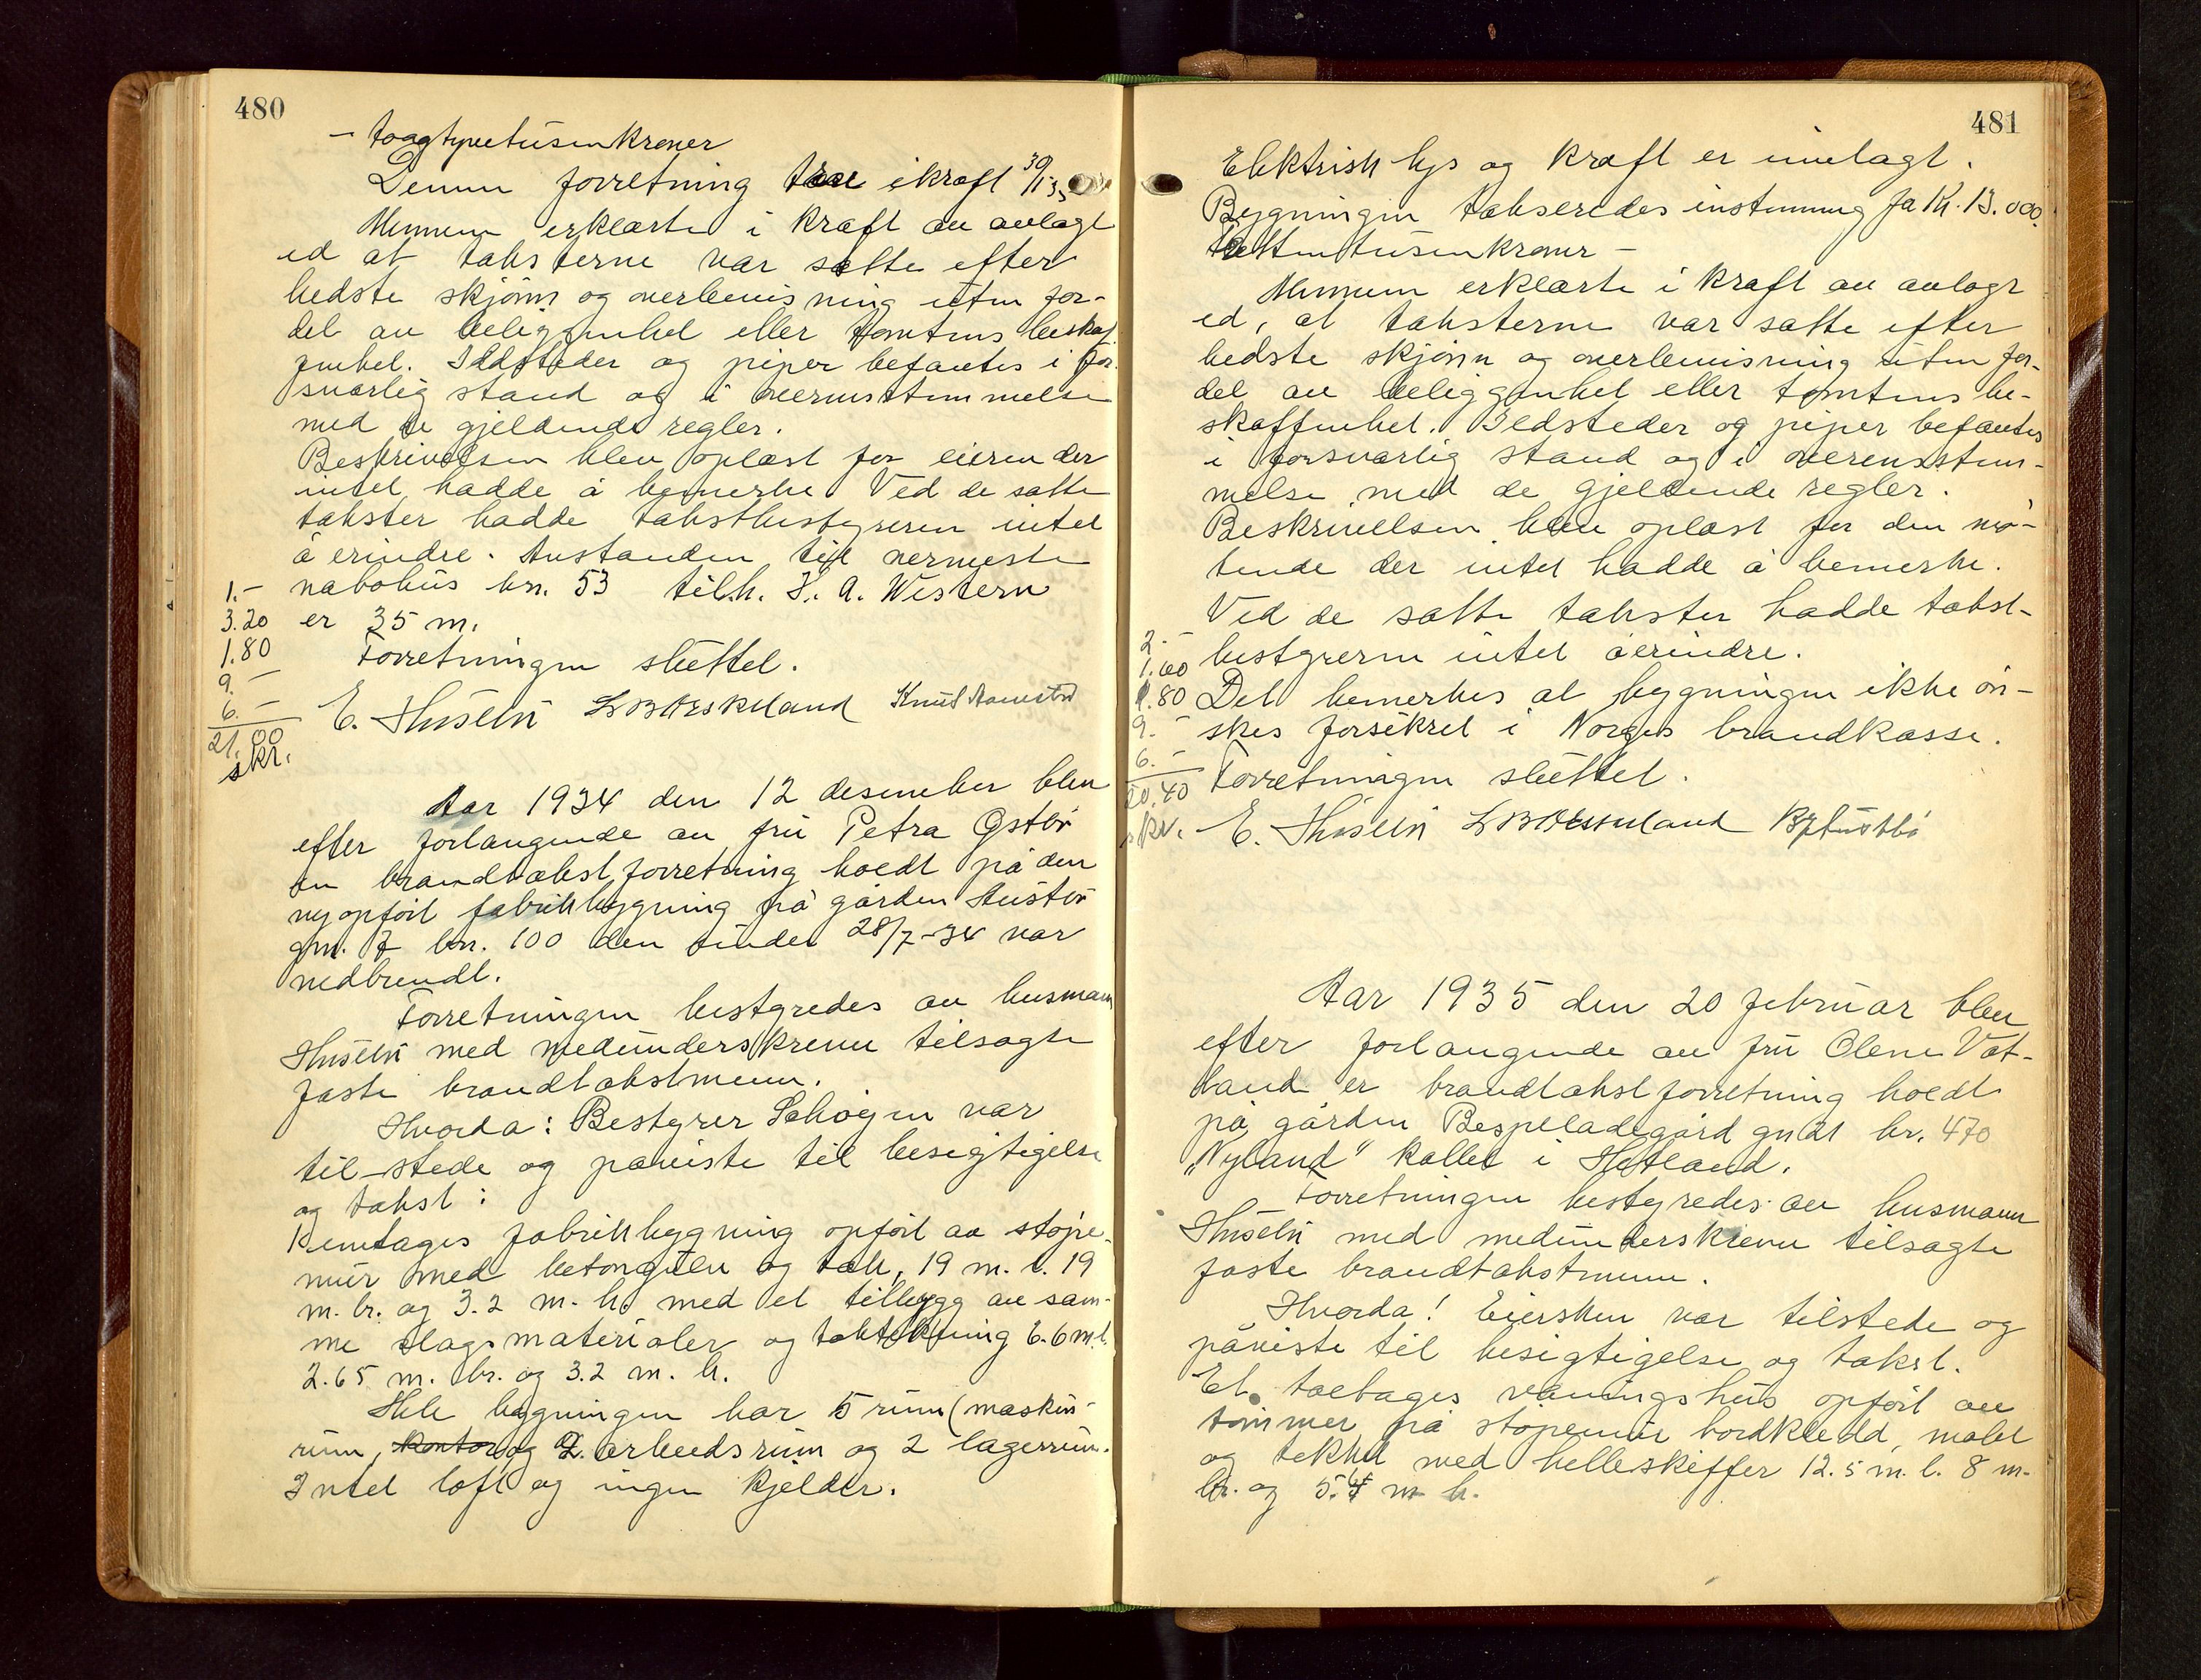 480
- toogtyvetusenkroner
Denne forretning trær ikraft 30/1 35
Mennene erklærte i kraft av avlagt
ed at taksterne var satte efter
bedste skjønn og overbevisning uten for-
del av beliggenhet eller tomtens beskaf-
fenhet. Ildsteder og piper befantes i for-
svarlig stand og i overensstemmelse
med de gjeldende regler.
Beskrivelsen blev oplæst for eieren der
intet hadde å bemerke. Ved de satte
takster hadde takstbestyreren intet
å erindre. Avstanden til nermeste
1.- nabohus bn. 53 tilh. I. A. Western
3.20 er 35 m.
1.80 Forretningen sluttet.
9.-
6.- E. Husebø L B Mæskeland Knut
21.00
skr.
Aar 1934 den 12 desember blev
efter forlangende av fru Petra Østbø
en brandtakst forretning holdt på den
nyopført fabrikkbygning på gården Austbø
gnr. 7 bn. 100 den under 28/7-34 var
nedbrendt.
Forretningen bestyredes av husmann
Husebø med medunderskrevne tilsagte
faste brandtakstmenn.
Hvorda: Bestyrer Schøyen var
tilstede og påviste til besigtigelse
og takst:
1 enetages fabrikkbygning opført av støpe-
mur med betonggulv og tak, 19 m. l. 19
m. br. og 3.2 m. h. med et tilbygg av sam-
me slags materialer og taktekning 6.6 m l.
2.65 m. br. og 3.2 m. h.
Hele bygningen har 5 rum (maskin-
rum, kontor og 2 arbeidsrum og 2 lagerrum.
Intet loft og ingen kjelder.
481
Elektrisk lys og kraft er innlagt.
Bygningen takseredes instemmig for Kr. 13.000
trettentusenkroner -
Mennene erklærte i kraft av avlagt
ed, at taksterne var satte efter
bedste skjønn og overbevisning uten for-
del av beliggenhet eller tomtens be-
skaffenhet. Ildsteder og piper befantes
i forsvarlig stand og i overensstem-
melse med de gjeldende regler.
Beskrivelsen blev oplæst for den mø-
tende der intet hadde å bemerke.
Ved de satte takster hadde takst-
2.- bestyreren intet å erindre.
1.60
1.80 Det bemerkes at bygningen ikke øn-
9.- skes forsikret i Norges brandkasse.
6.- Forretningen sluttet.
20.40
skr. E. Husebø L B Mæskeland
Aar 1935 den 20 februar blev
efter forlangende av fru Olene Vat-
land er brandtakst forretning holdt
på gården Bespeladegård gn 21 br. 470
"Nyland" kallet i Hetland.
Forretningen bestyredes av husmann
Husebø med medunderskrevne tilsagte
faste brandtakstmenn.
Hvorda! Eiersken var tilstede og
påviste til besigtigelse og takst.
Et toetages våningshus opført av
tømmer på støpemur bordkledd, malet
og tekket med helleskiffer 12.5 m. l. 8 m.
br. og 5.4 m h.